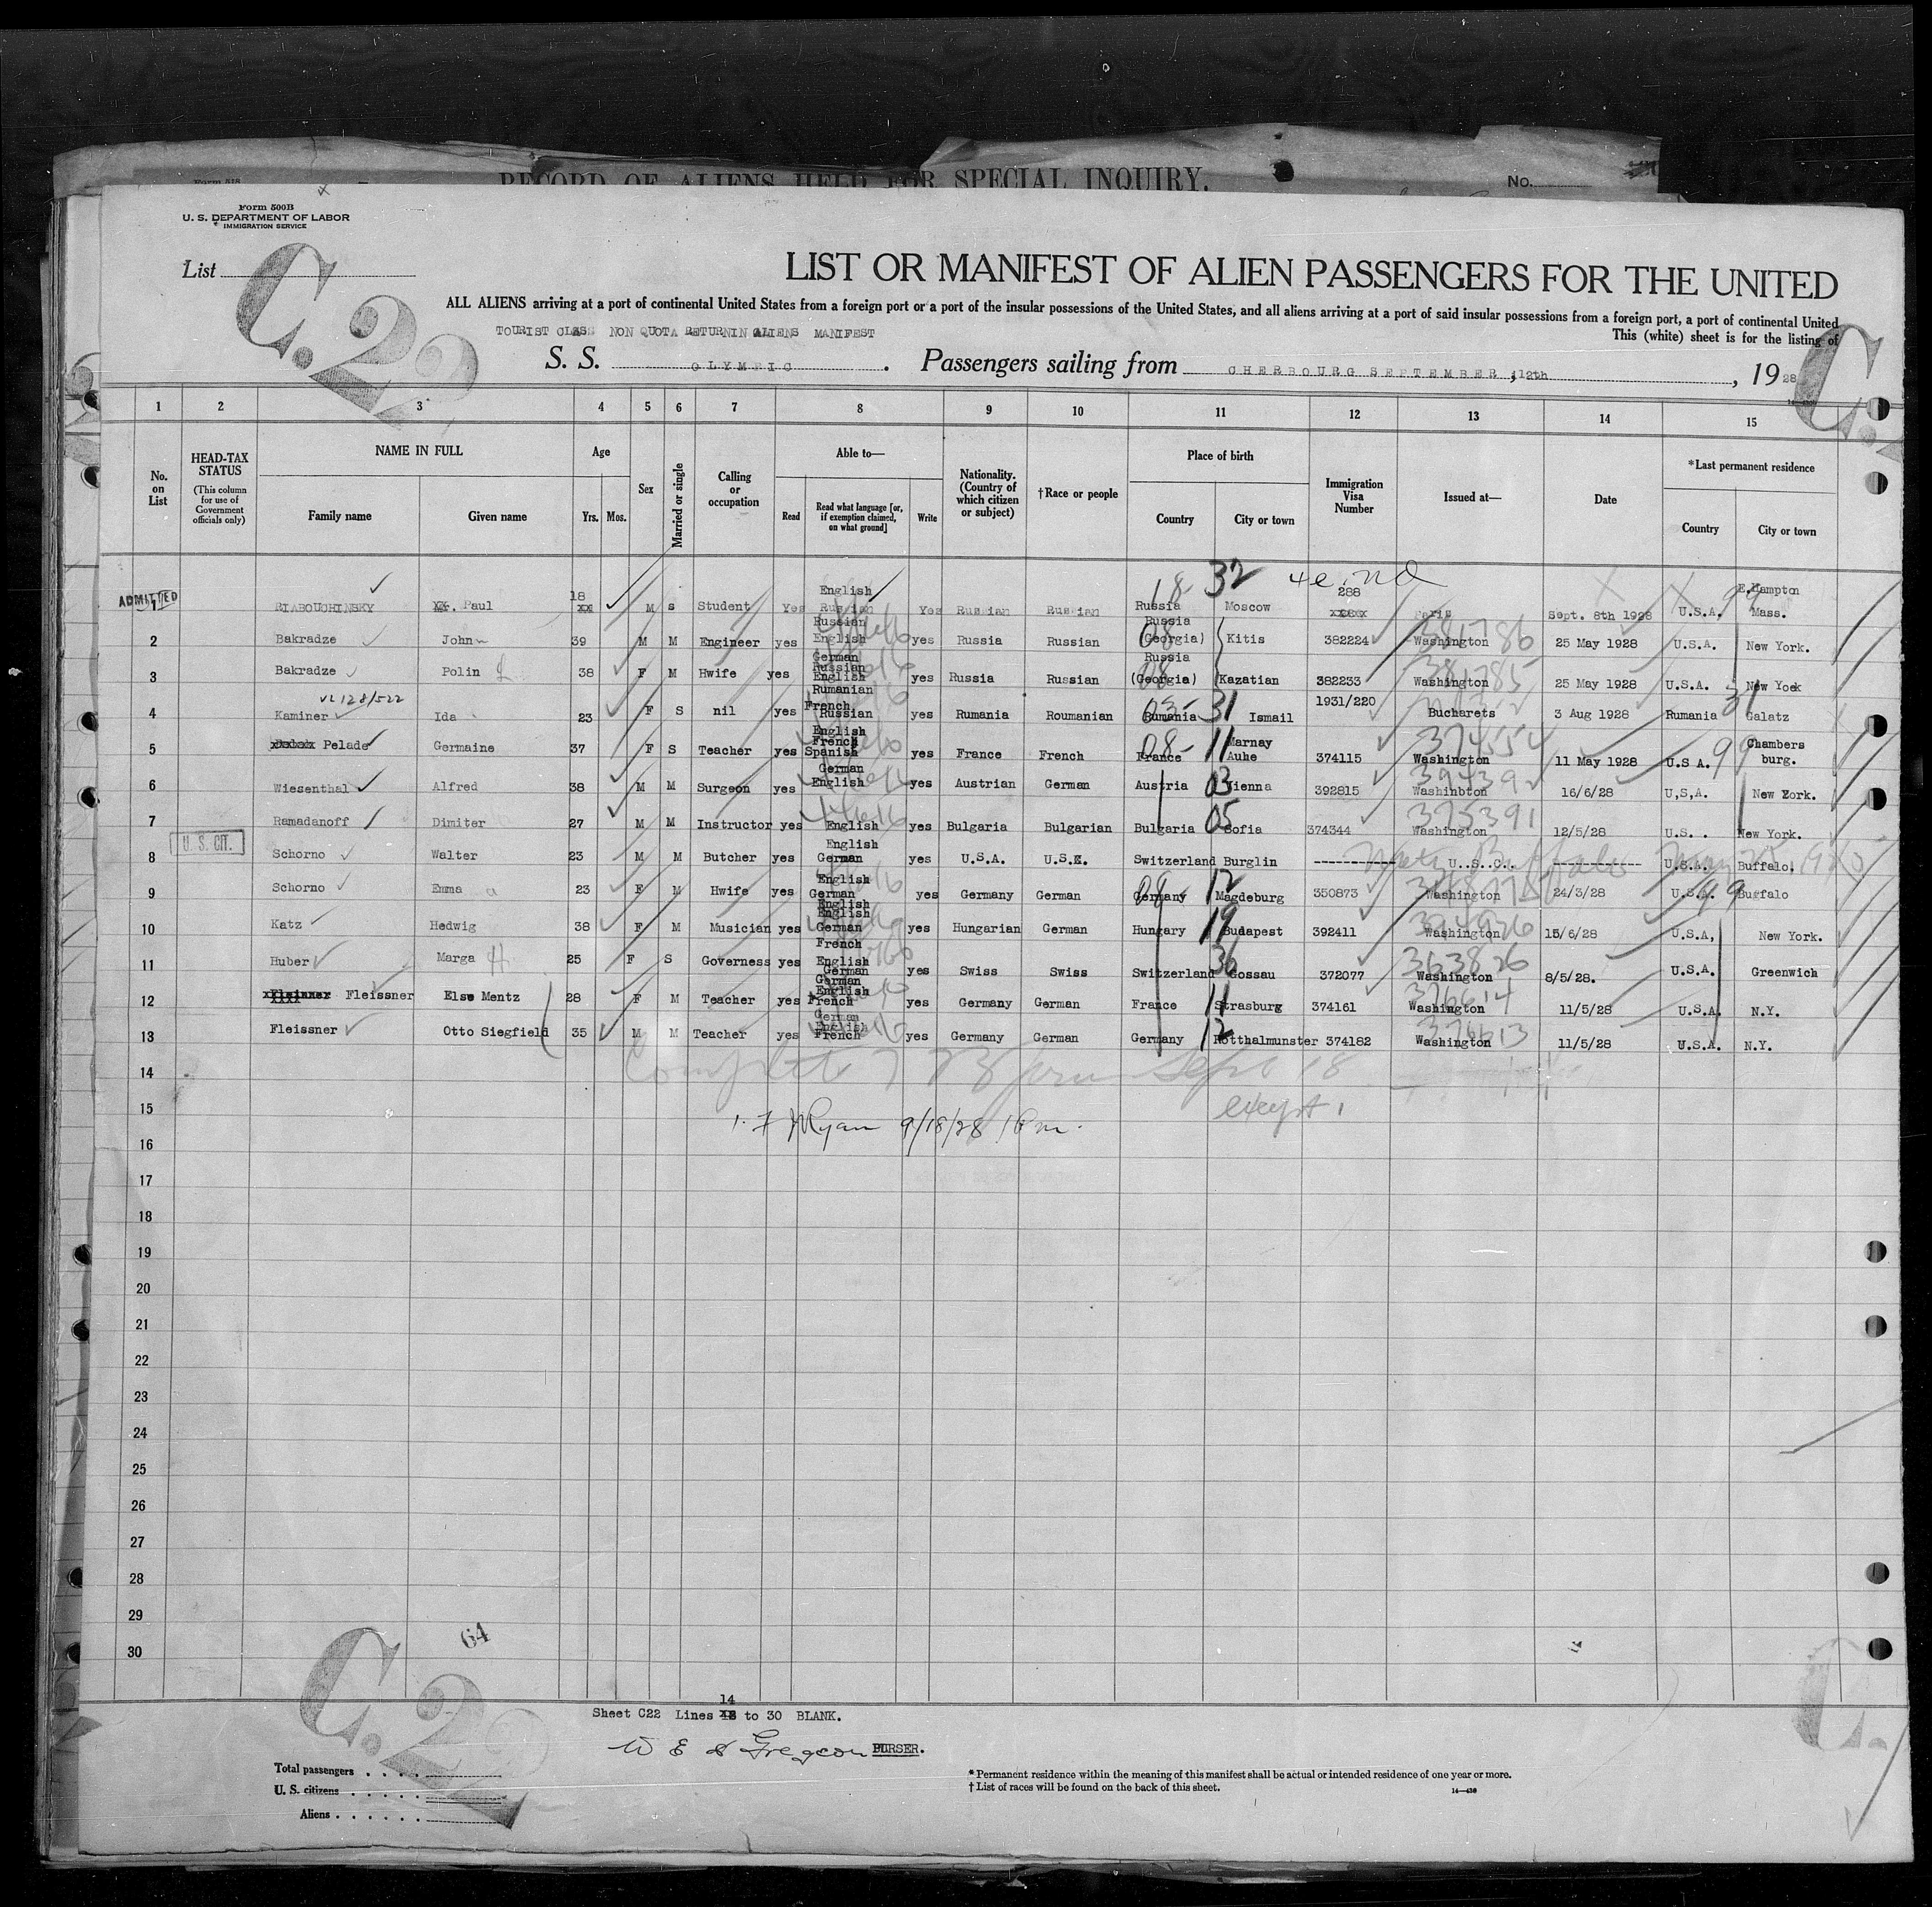 RECORD OF ALIENS HELD FOR SPECIAL INQUIRY.
No.
Form 500B
U. S. DEPARTMENT OF LABOR
IMMIGRATION SERVICE
List
C.22
LIST OR MANIFEST OF ALIEN PASSENGERS FOR THE UNITED
ALL ALIENS arriving at a port of continental United States from a foreign port or a port of the insular possessions of the United States, and all aliens arriving at a port of said insular possessions from a foreign port, a port of continental United
TOURIST CLASS NON QUOTA RETURNIN ALIENS MANIFEST
This (white) sheet is for the listing of
S. S. OLYMPIC. Passengers sailing from CHERBOURG SEPTEMBER 12th, 1928
1 2 3 4 5 6 7 8 9 10 11 12 13 14 15
No. on List
HEAD-TAX STATUS (This column for use of Government officials only)
NAME IN FULL Family name Given name
Age Yrs. Mos.
Sex
Married or single
Calling or occupation
Able to— Read Read what language [or, if exemption claimed, on what ground] Write
Nationality. (Country of which citizen or subject)
†Race or people
Place of birth Country City or town
Immigration Visa Number
Issued at—
Date
*Last permanent residence Country City or town
ADMITTED
1 RIABOUCHINSKY Paul 18 M S Student Yes English Russian Yes Russian Russian Russia Moscow 288 Paris Sept. 8th 1928 U.S.A. E.Hampton Mass.
2 Bakradze John 39 M M Engineer yes Russian English yes Russia Russian Russia (Georgia) Kitis 382224 Washington 25 May 1928 U.S.A. New York.
3 Bakradze Polin 38 F M Hwife yes German Russian English yes Russia Russian Russia (Georgia) Kazatian 382233 Washington 25 May 1928 U.S.A. New York
VL 128/522
4 Kaminer Ida 23 F S nil yes Rumanian French Russian yes Rumania Roumanian Rumania Ismail 1931/220 Bucharets 3 Aug 1928 Rumania Galatz
5 Pelade Germaine 37 F S Teacher yes English French Spanish yes France French France Marnay Auhe 374115 Washington 11 May 1928 U.S A. Chambers burg.
6 Wiesenthal Alfred 38 M M Surgeon yes German English yes Austrian German Austria Vienna 392815 Washinbton 16/6/28 U,S,A. New York.
7 Ramadanoff Dimiter 27 M M Instructor yes English yes Bulgaria Bulgarian Bulgaria Sofia 374344 Washington 12/5/28 U.S. . New York.
U.S. CIT.
8 Schorno Walter 23 M M Butcher yes English German yes U.S.A. U.S.E. Switzerland Burglin ---------- U..S..C.. ---------- U.S.A. Buffalo,
9 Schorno Emma 23 F M Hwife yes English German yes Germany German Germany Magdeburg 350873 Washington 24/3/28 U.S.A. Bugfalo
10 Katz Hedwig 38 F M Musician yes English German yes Hungarian German Hungary Budapest 392411 Washington 15/6/28 U.S.A, New York.
11 Huber Marga H 25 F S Governess yes French English German yes Swiss Swiss Switzerland Gossau 372077 Washington 8/5/28. U.S.A. Greenwich
12 Fleissner Else Mentz 28 F M Teacher yes German English French yes Germany German France Strasburg 374161 Washington 11/5/28 U.S.A. N.Y.
13 Fleissner Otto Siegfield 35 M M Teacher yes German English French yes Germany German Germany Rotthalmunster 374182 Washington 11/5/28 U.S.A. N.Y.
14
15
Ryan 9/18/28
16
17
18
19
20
21
22
23
24
25
26
27
28
29
30
64
C.22
Sheet C22 Lines 14 to 30 BLANK.
PURSER.
Total passengers
U. S. citizens
Aliens
* Permanent residence within the meaning of this manifest shall be actual or intended residence of one year or more.
† List of races will be found on the back of this sheet.